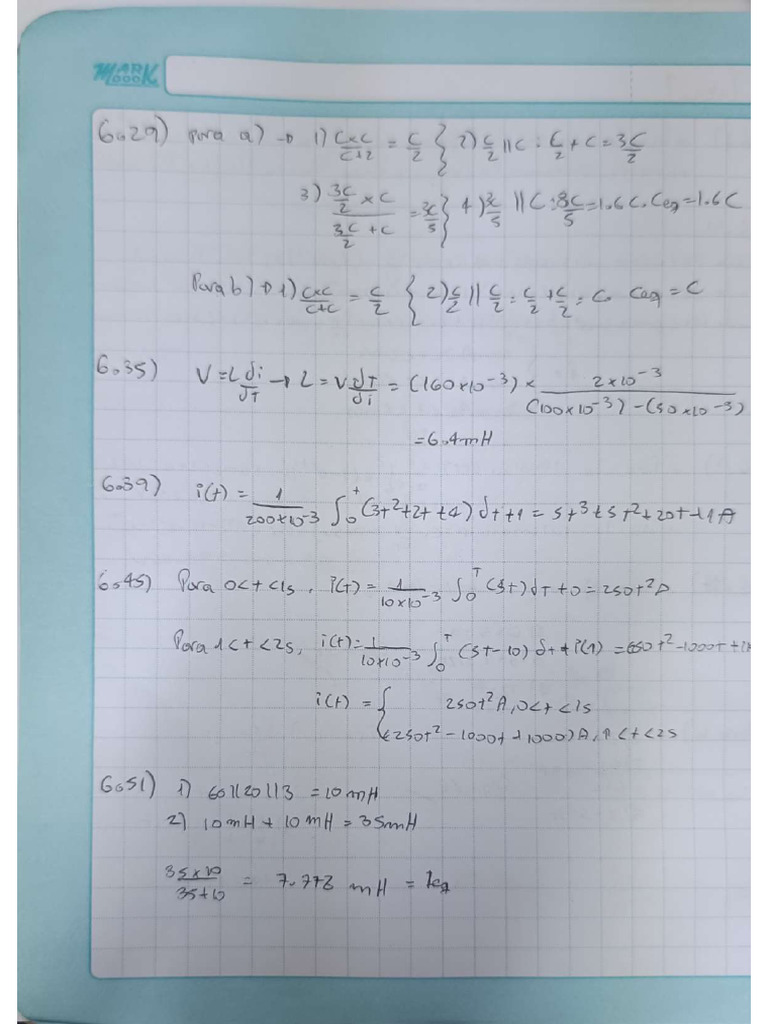 MARK
BOOK
6.29) para a) → 1) CxC/C+2 = C/2 { 2) C/2 || C : C/2 + C = 3C/2
3) 3C/2 x C / 3C/2 + C = 3C/5 } 4) 3C/5 || C : 8C/5 = 1.6C. Ceq = 1.6C
Para b) → 1) CxC/C+C = C/2 { 2) C/2 || C/2 = C/2 + C/2 = C. Ceq = C
6.35) V = L di/dT → L = V dT/di = (160x10^-3) x 2x10^-3 / (100x10^-3) - (50x10^-3)
= 6.4mH
6.39) i(t) = 1/200x10^-3 ∫0^t (3t^2+2t+4) dt+1 = 5t^3+5t^2+20t+1A
6.45) Para 0<t<1s, i(t) = 1/10x10^-3 ∫0^T (5t)dT+0 = 250t^2 A
Para 1<t<2s, i(t) = 1/10x10^-3 ∫0^T (5t-10) dt + i(1) = t^2-1000t+
i(t) = { 250t^2 A, 0<t<1s
(250t^2 - 1000t + 1000) A, 1<t<2s
6.51) 1) 60||20||3 = 10mH
2) 10mH + 10mH = 35mH
35x10/35+10 = 7.778 mH = Leq